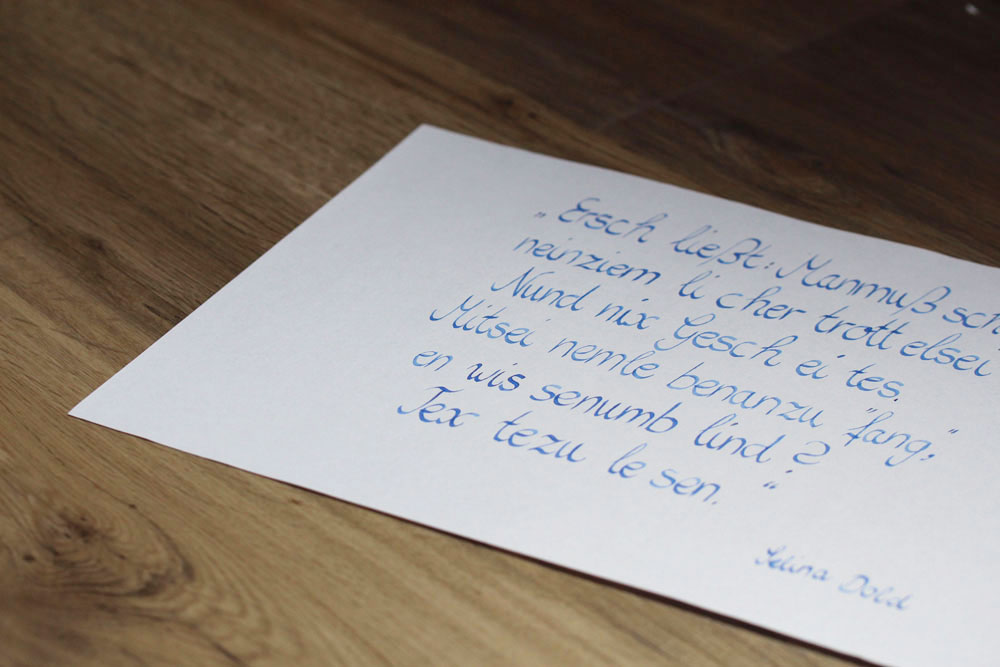 „Ersch ließt: Manmuß sch
neinziem li cher trott elsei
Nund nix Gesch ei tes.
Mitsei nemle benanzu "fang;"
en wis senumb lind?
Tex tezu le sen. “
Selina Dold